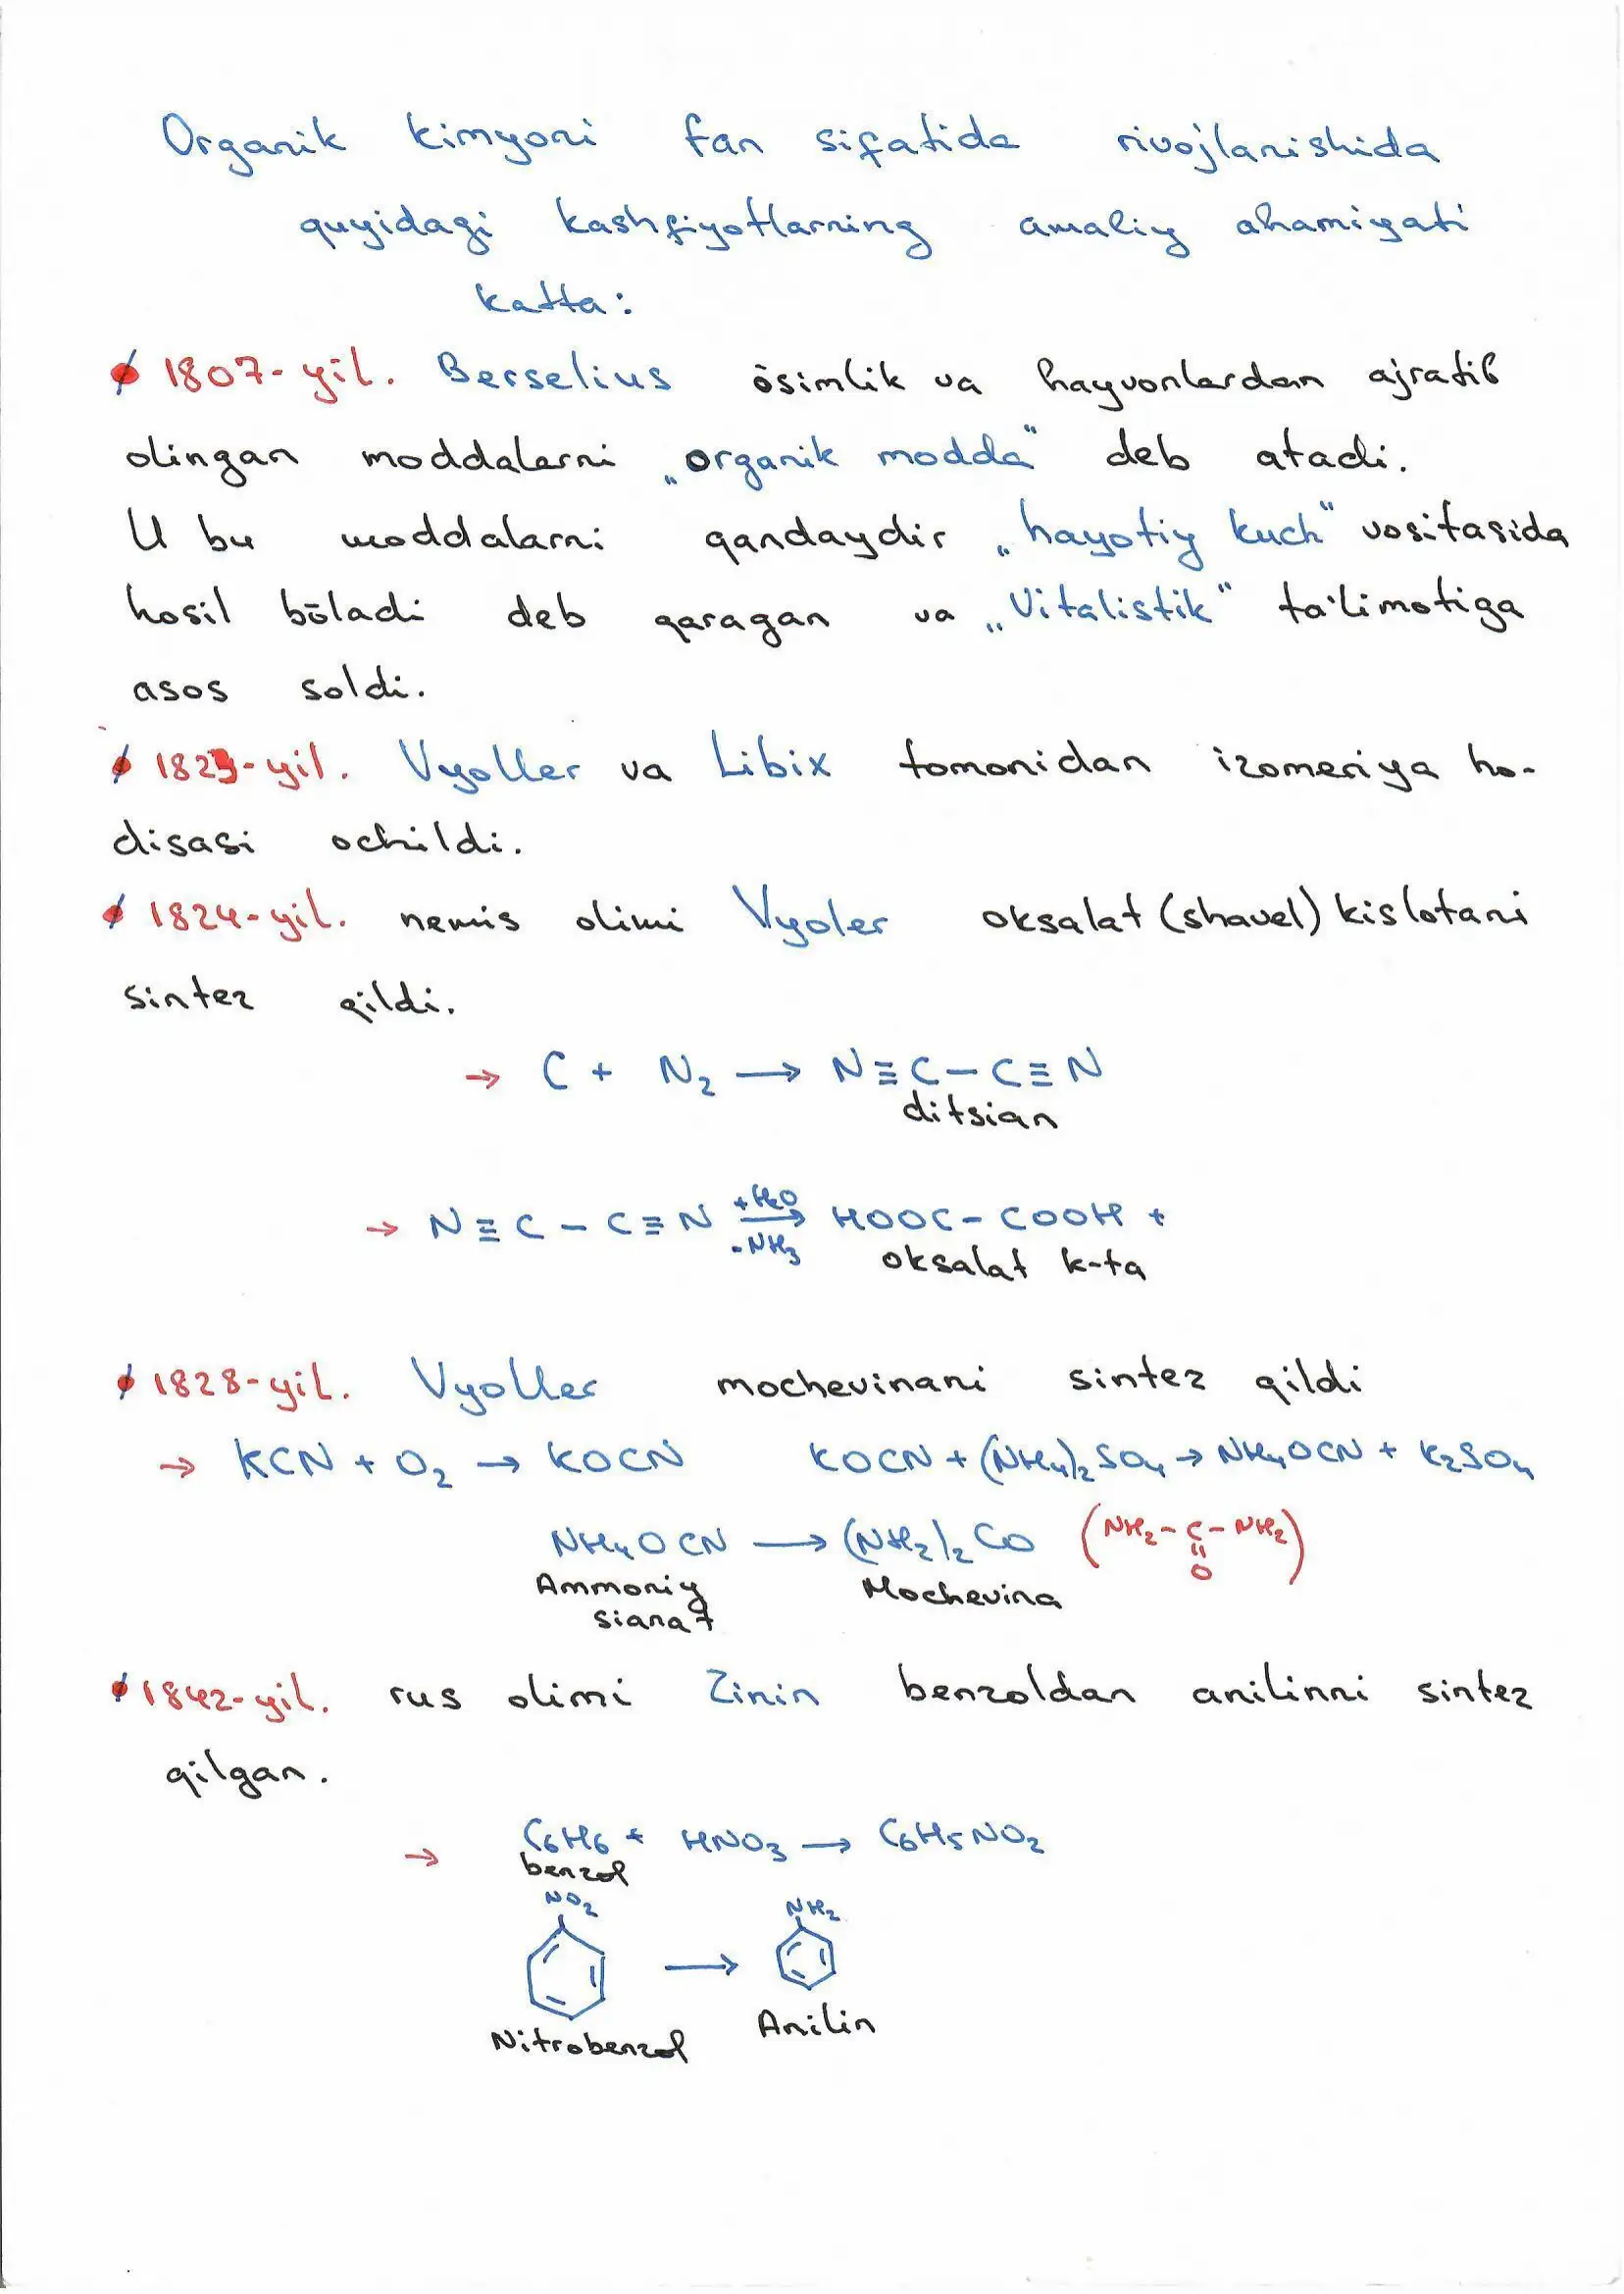 Organik kimyoni fan sifatida rivojlanishida
quyidagi kashfiyotlarning amaliy ahamiyati
katta:
1807-yil. Berselius ōsimlik va hayvonlardan ajratib
olingan moddalarni „organik modda“ deb atadi.
U bu moddalarni qandaydir „hayotiy kuch“ vositasida
hosil bōladi deb qaragan va „Vitalistik“ ta'limotiga
asos soldi.
1823-yil. Vyoller va Libix tomonidan izomeriya ho-
disasi ochildi.
1824-yil. nemis olimi Vyoler oksalat (shavel) kislotani
sintez qildi.
→ C + N₂ → N≡C–C≡N
ditsian
+H₂O
→ N≡C–C≡N → HOOC–COOH +
-NH₃
oksalat k-ta
1828-yil. Vyoller mochevinani sintez qildi
→ KCN + O₂ → KOCN KOCN + (NH₄)₂SO₄ → NH₄OCN + K₂SO₄
NH₄OCN → (NH₂)₂CO (NH₂–C–NH₂)
=
O
Ammoniy Mochevina
sianat
1842-yil. rus olimi Zinin benzoldan anilinni sintez
qilgan.
→ C₆H₆ + HNO₃ → C₆H₅NO₂
benzol
NO₂ NH₂
→
Nitrobenzol Anilin